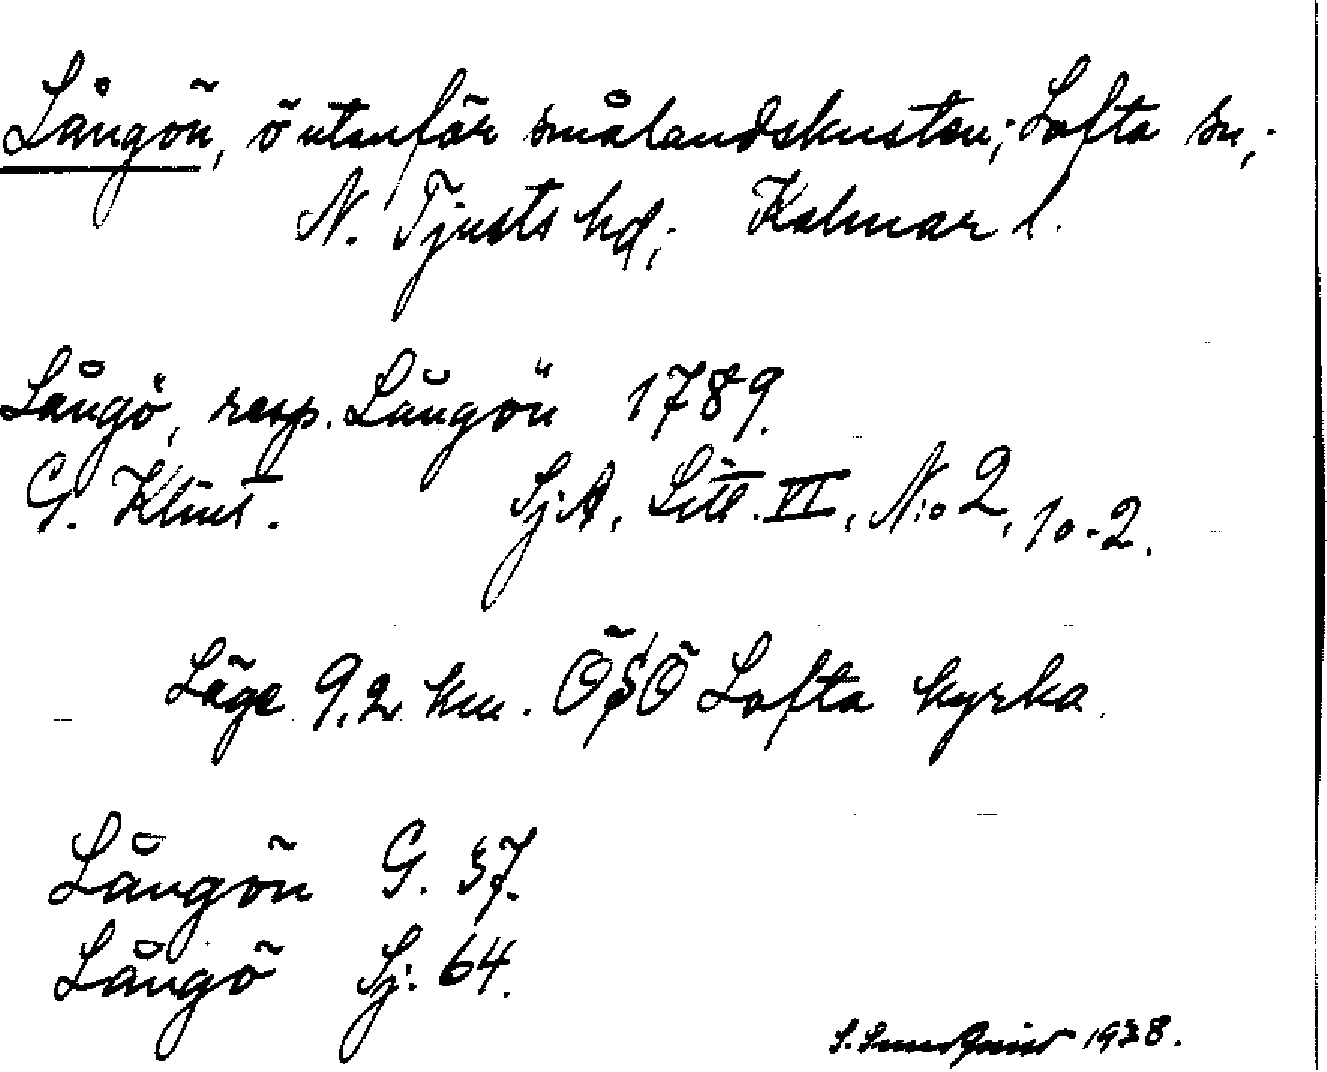 Långön, ö utanför smålandskusten; Lofta sn,;
N. Tjusts hd,; Kalmar l.
Långö, resp. Långön 1789.
G. Klint. Sj.A, Litt. VI, N:o 2, 10-2.
Läge 9,2 km. ÖSÖ Lofta kyrka.
Långön G. 37.
Långö Sj. 64.
S. 1938.